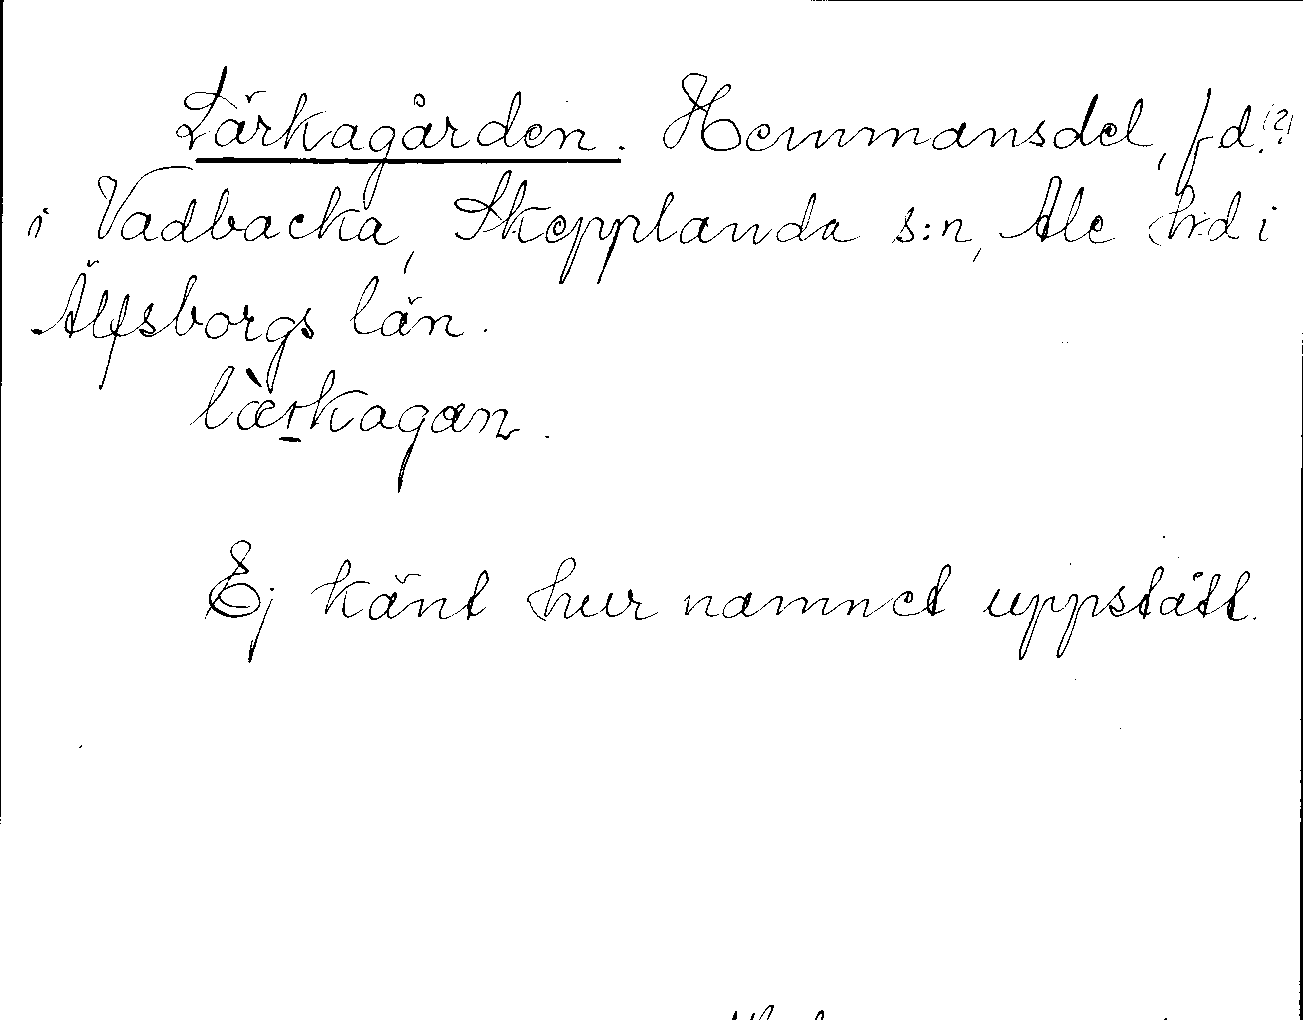 Lärkagården. Hemmansdel, f.d.(?)
i Vadbacka, Skepplanda s:n, Ale hrd i
Älfsborgs län.
læ̀rkagan.
Ej känt hur namnet uppstått.